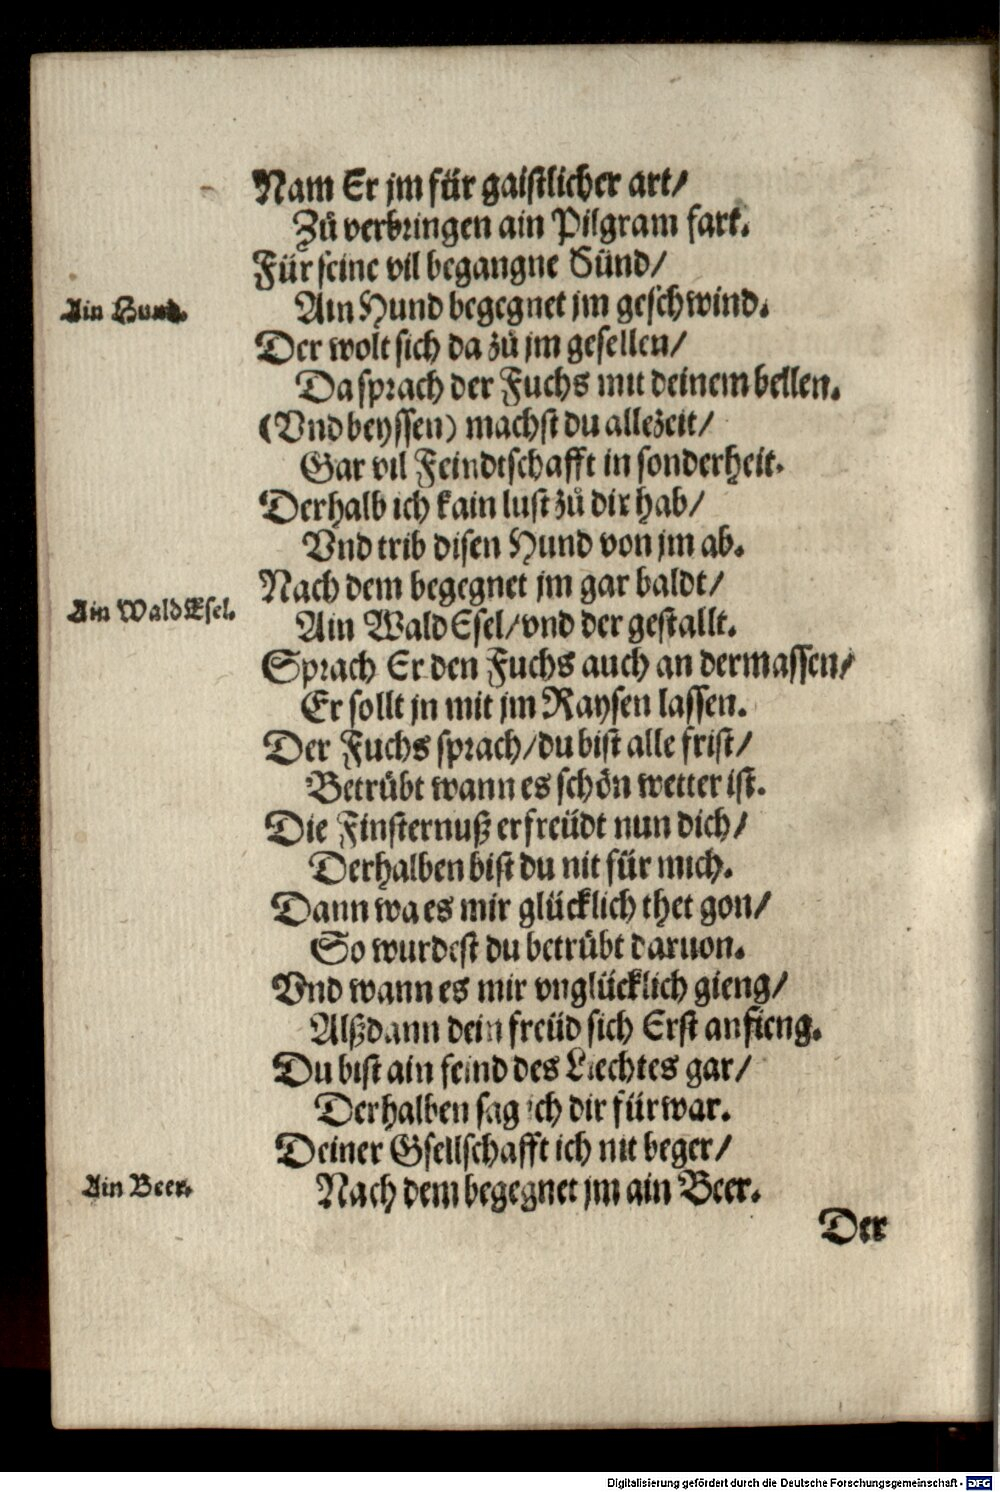 Nam Er jm für gaistlicher art/
Zů verbringen ain Pilgram fart.
Für seine vil begangne Sünd/
Ain Hund.
Ain Hund begegnet jm geschwind.
Der wolt sich da zů jm gesellen/
Da sprach der Fuchs mit deinem bellen.
(Vnd beyssen) machst du allezeit/
Gar vil Feindtschafft in sonderheit.
Derhalb ich kain lust zů dir hab/
Vnd trib disen Hund von jm ab.
Nach dem begegnet jm gar baldt/
Ain Wald Esel.
Ain Wald Esel/vnd der gestallt.
Sprach Er den Fuchs auch an dermassen/
Er sollt jn mit jm Raysen lassen.
Der Fuchs sprach/du bist alle frist/
Betrübt wann es schön wetter ist.
Die Finsternuß erfreüdt nun dich/
Derhalben bist du nit für mich.
Dann wa es mir glücklich thet gon/
So wurdest du betrübt daruon.
Vnd wann es mir vnglücklich gieng/
Alßdann dein freüd sich Erst anfieng.
Du bist ain feind des Liechtes gar/
Derhalben sag ich dir fürwar.
Deiner Gsellschafft ich nit beger/
Ain Beer.
Nach dem begegnet jm ain Beer.
Der
Digitalisierung gefördert durch die Deutsche Forschungsgemeinschaft - DFG